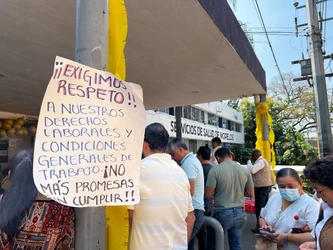 ¡¡EXIGIMOS
RESPETO!!
A NUESTROS
DERECHOS
LABORALES Y
CONDICIONES
GENERALES DE
TRABAJO ¡NO
MÁS PROMESAS
SIN CUMPLIR!!
SERVICIOS DE SALUD DE MORELOS